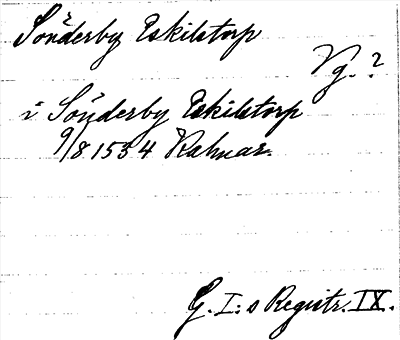 Sönderby Eskilstorp
Vg. ?
i Sönderby Eskilstorp
9/8 1534 Kalmar.
G. I:s Registr. IX.